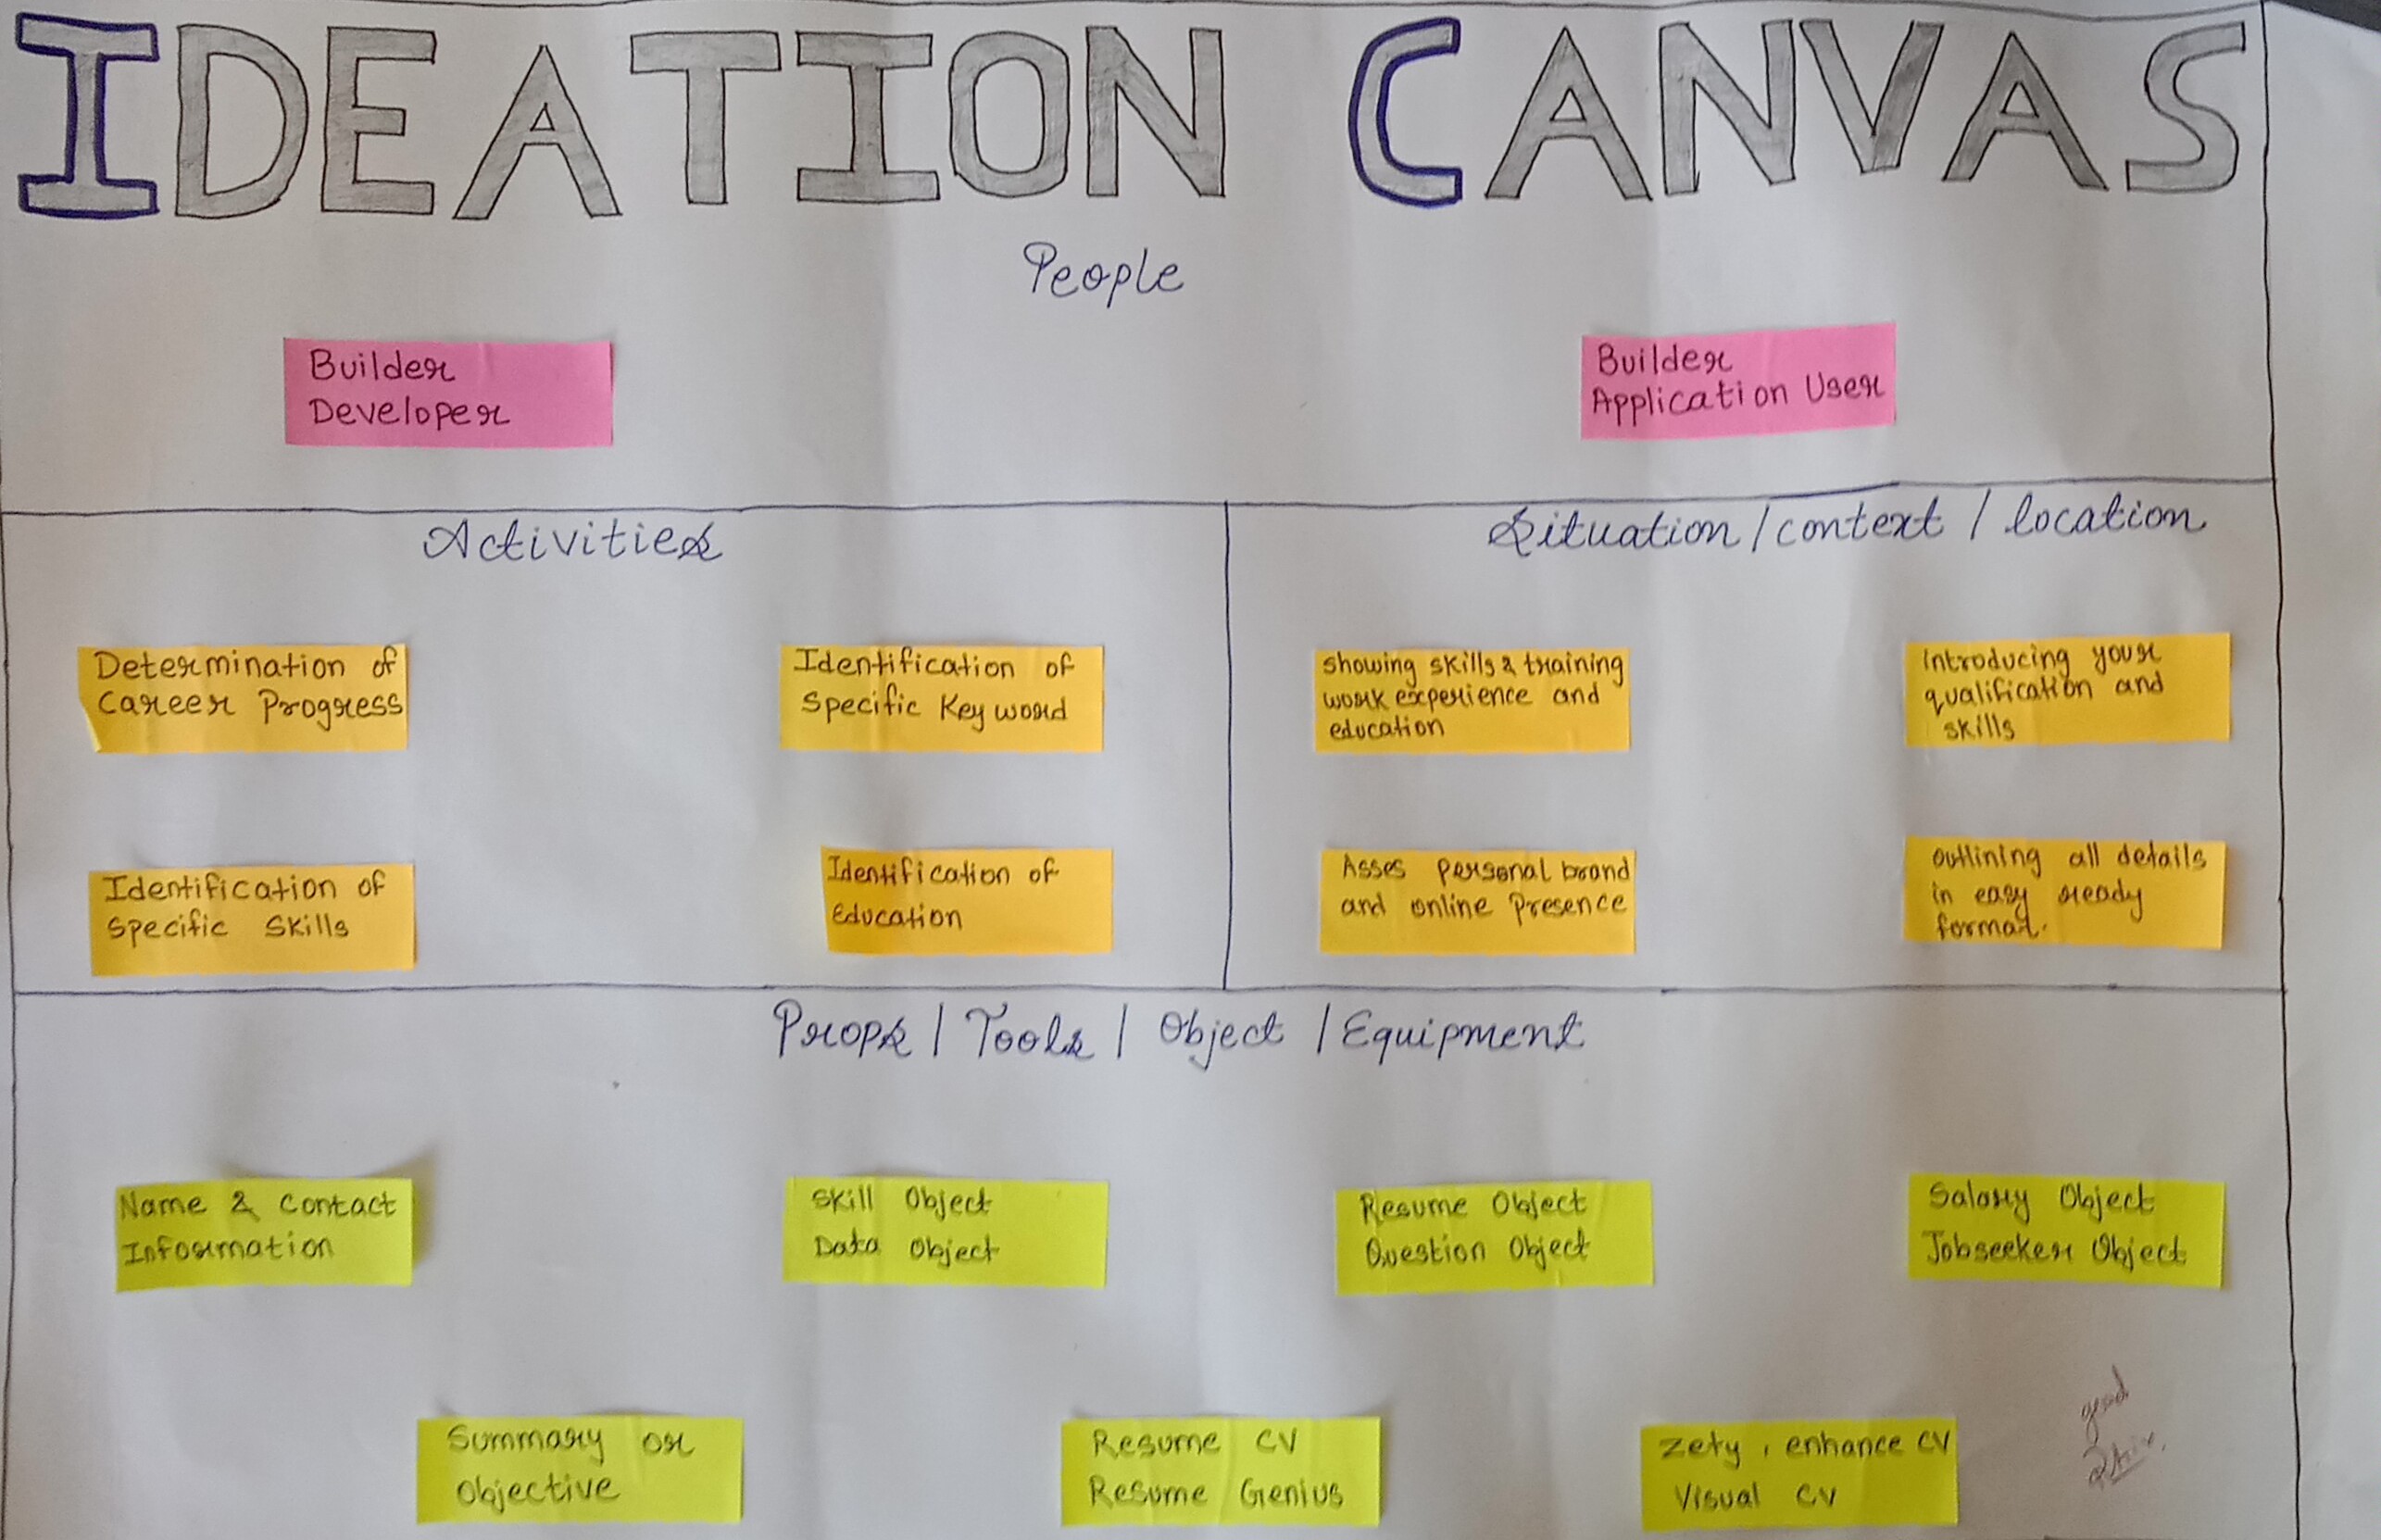 IDEATION CANVAS
People
Builder
Developer
Builder
Application User
Activities
Determination of
Career Progress
Identification of
Specific Key word
Identification of
Specific Skills
Identification of
Education
Situation / context / location
showing skills & training
work experience and
education
introducing your
qualification and
skills
Asses personal brand
and online Presence
outlining all details
in easy ready
format.
Props / Tools / Object / Equipment
Name & Contact
Information
Skill Object
Data Object
Resume Object
Question Object
Salary Object
Jobseeker Object
Summary or
Objective
Resume CV
Resume Genius
Zety, enhance CV
Visual CV
good